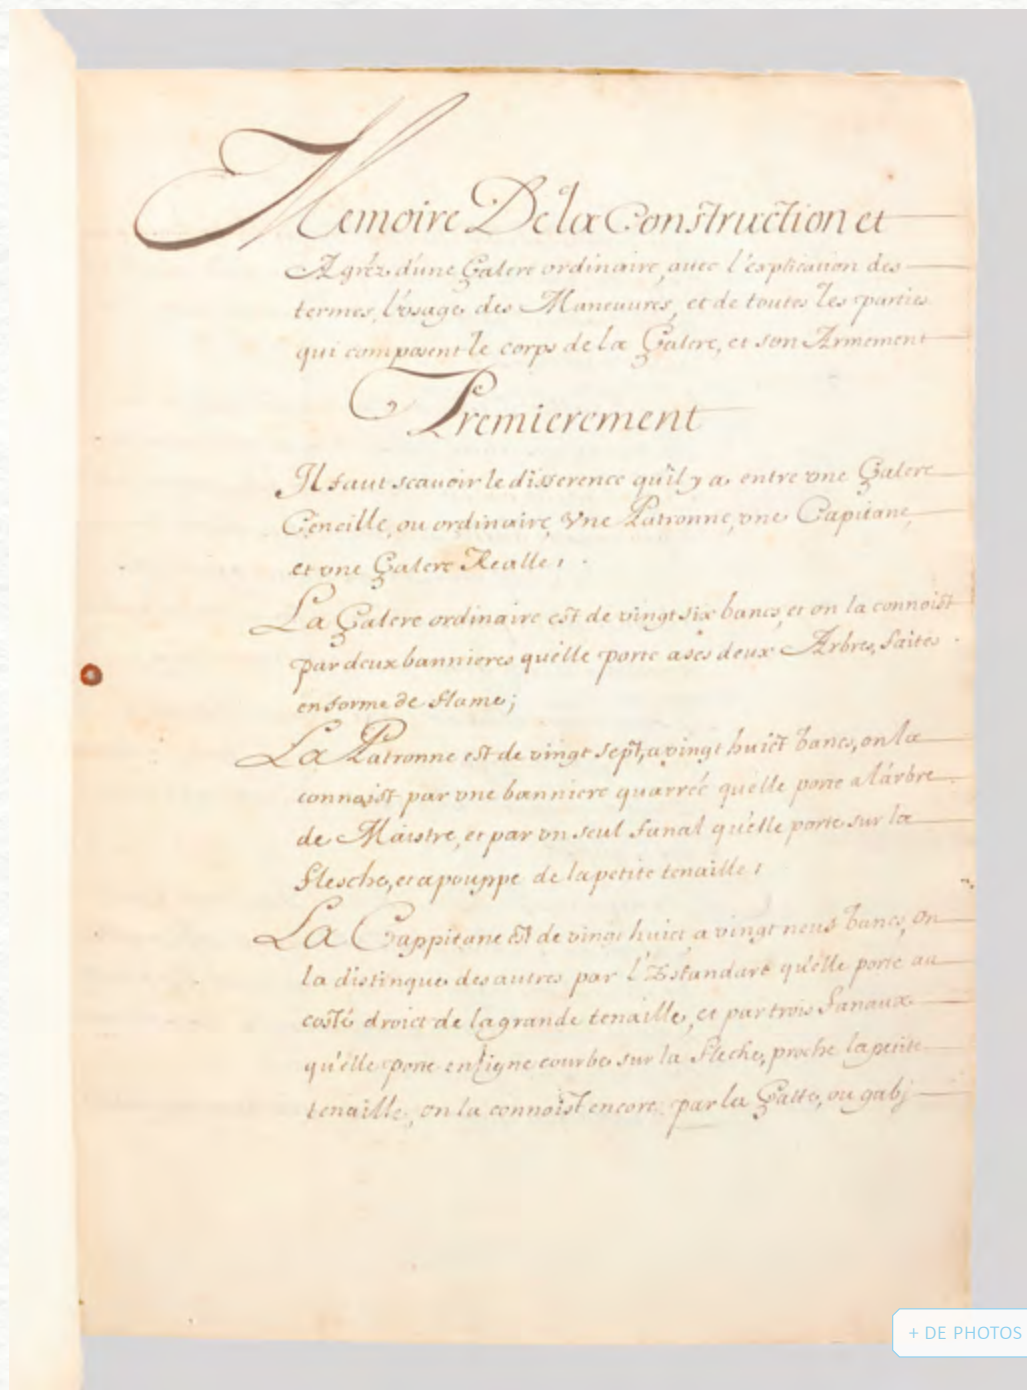 Memoire De la Construction et
Agréz d'une Galere ordinaire, avec l'explication des
termes, l'vsage des Maneuures, et de toutes les parties
qui composent le corps de la Galere, et son Armement
Premierement
Il faut scauoir le difference qu'il y a entre vne Galere
Cencille, ou ordinaire, Vne Patronne, vne Capitane,
et vne Galere Realle;
La Galere ordinaire est de vingt six bancs, et on la connoist
par deux bannieres qu'elle porte a ses deux Arbres, faites
en forme de flame;
La Patronne est de vingt sept, a vingt huict bancs, on la
connoist par vne banniere quarrée qu'elle porte a l'arbre
de Maistre, et par vn seul fanal qu'elle porte sur la
flesche, et a pouppe de la petite tenaille;
La Cappitane est de vingt huict, a vingt neuf bancs, on
la distingue des autres par l'Estandart qu'elle porte au
costé droict de la grande tenaille, et par trois fanaux
qu'elle porte en ligne courbe sur la fleche, proche la petite
tenaille, on la connoist encore par la Gatte, ou gabj
+ DE PHOTOS